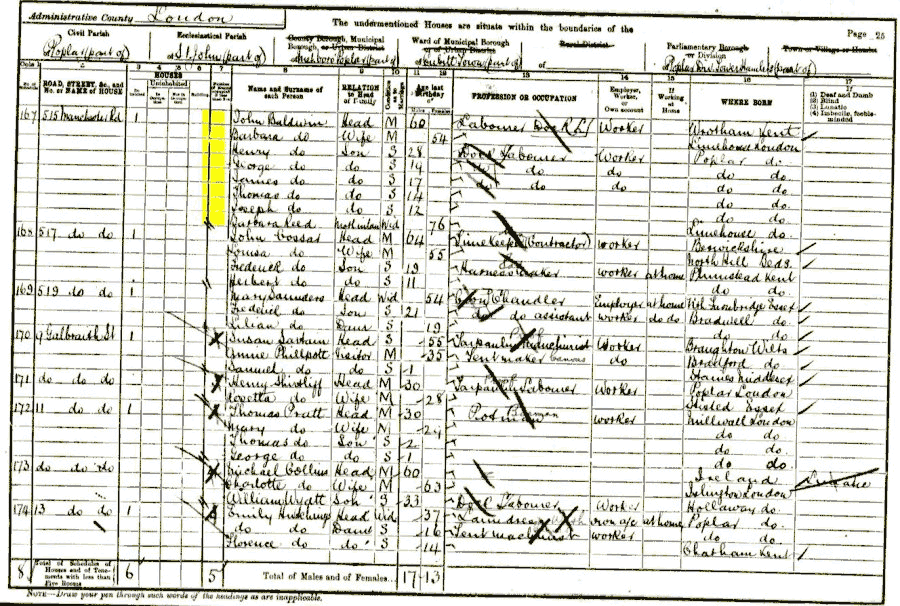 Administrative County London
The undermentioned Houses are situate within the boundaries of the
Page 25
Civil Parish
Ecclesiastical Parish
County Borough, Municipal Borough, or Urban District
Ward of Municipal Borough or Urban District
Rural District
Parliamentary Borough or Division
Town or Village or Hamlet
Poplar (part of)
St John (part of)
Poplar (part of)
Cubitt Town (part of)
of
ROAD, STREET, &c., and No. or NAME of HOUSE
HOUSES
Name and Surname of each Person
RELATION to Head of Family
Age last Birthday of
PROFESSION OR OCCUPATION
Employer, Worker, or Own account
If Working at Home
WHERE BORN
(1) Deaf and Dumb
(2) Blind
(3) Lunatic
(4) Imbecile, feeble-minded
167 515 Manchester Rd 1 John Baldwin Head M 60 Labourer Worker Wrotham Kent
Barbara do Wife M 54 Limehouse London
Henry do Son S 28 Dock Labourer Worker Poplar do
George do do S 19 do do do do do
James do do S 17 do do do do
Thomas do do S 14 do do
Joseph do do S 12 do do
Barbara Reed Mother in law Wid 76 Limehouse do
168 517 do do 1 John Cossar Head M 64 Timekeeper (Contractor) worker Berwickshire
Louisa do Wife M 55 North Hill Beds
Frederick do Son S 19 Harness maker worker at home Plumstead Kent
Herbert do do S 11 do do
169 519 do do 1 Mary Saunders Head Wid 54 Corn Chandler Employer at home
Frederick do Son S 21 do do assistant worker do do Bradwell do
Lilian do Daur S 19 do do
170 9 Galbraith St 1 Susan Head S 55 Tarpaulin Machinist Worker Broughton Wilts
Annie Phillpott Visitor M 35 Tent maker canvas do Bradford do
Samuel do do S 1
171 do do do Henry Head M 30 Tarpaulin Labourer Worker Poplar London
do Wife M 28 Essex
172 11 do do 1 Thomas Pratt Head M 30 Potman worker Millwall London
Mary do Wife M 24 do do
Thomas do Son S 2 do do
George do do S 1 do do
173 do do do Michael Collins Head M 60 Ireland
Charlotte do Wife M 63 Islington London
William Wyatt Son S 33 Dock Labourer Worker Holloway do
174 13 do do 1 Emily Head Wid 37 Laundress own a/c at home Poplar do
do do Daur S 16 Tent machinist worker do do
Florence do do S 14 Chatham Kent
8 Total of Schedules of Houses and of Tenements with less than Five Rooms 6 5 Total of Males and of Females... 17 13
NOTE—Draw your pen through such words of the headings as are inapplicable.